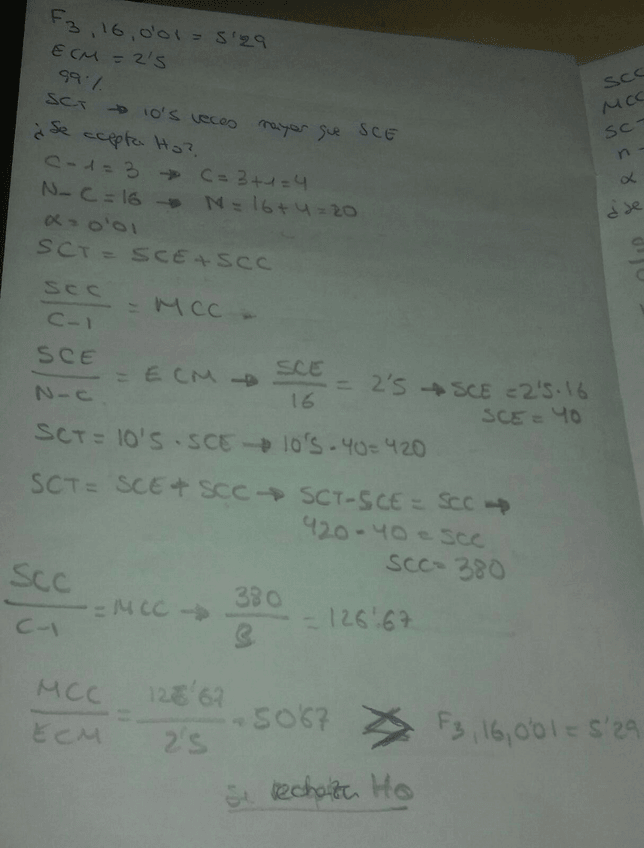 F3,16,0'01 = 5'29
ECM = 2'5
99%
SCT → 10'5 veces mayor que SCE
¿Se acepta H0?
C-1=3 → C=3+1=4
N-C=16 → N=16+4=20
α=0'01
SCT = SCE+SCC
SCC/C-1 = MCC
SCE/N-C = ECM → SCE/16 = 2'5 → SCE = 2'5·16
SCE = 40
SCT = 10'5 · SCE → 10'5 · 40 = 420
SCT = SCE + SCC → SCT-SCE = SCC →
420-40 = SCC
SCC = 380
SCC/C-1 = MCC → 380/3 = 126'67
MCC/ECM = 126'67/2'5 = 50'67 > F3,16,0'01 = 5'29
se rechaza H0
SCC
MCC
SC
n-
α
¿se